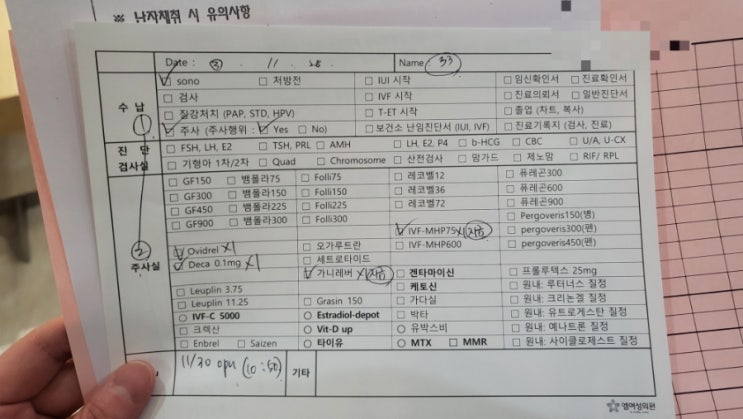 ※ 난자채취 시 유의사항
Date : ③ . 11 . 28 Name : 33
수 납 ①
☑ sono □ 처방전 □ IUI 시작 □ 임신확인서 □ 진료확인서
□ 검사 □ IVF 시작 □ 진료의뢰서 □ 일반진단서
□ 질강처치 (PAP, STD, HPV) □ T-ET 시작 □ 졸업 (차트, 복사)
☑ 주사 (주사행위 : ☑ Yes □ No) □ 보건소 난임진단서 (IUI, IVF) □ 진료기록지 (검사, 진료)
진 단 검사실
□ FSH, LH, E2 □ TSH, PRL □ AMH □ LH, E2, P4 □ b-HCG □ CBC □ U/A, U-CX
□ 기형아 1차/2차 □ Quad □ Chromosome □ 산전검사 □ 맘가드 □ 제노맘 □ RIF/ RPL
② 주사실
□ GF150 □ 벰폴라75 □ Folli75 □ 레코벨12 □ 퓨레곤300
□ GF300 □ 벰폴라150 □ Folli150 □ 레코벨36 □ 퓨레곤600
□ GF450 □ 벰폴라225 □ Folli225 □ 레코벨72 □ 퓨레곤900
□ GF900 □ 벰폴라300 □ Folli300 □ Pergoveris150(병)
☑ IVF-MHP75 x1 □ pergoveris300(펜)
☑ Ovidrel x1 □ 오가루트란 □ IVF-MHP600 □ pergoveris450(펜)
☑ Deca 0.1mg x1 □ 세트로타이드
☑ 가니레버 x1 □ 겐타마이신 □ 프롤루텍스 25mg
□ Leuplin 3.75 □ 케토신 □ 원내: 루터너스 질정
□ Leuplin 11.25 □ Grasin 150 □ 가다실 □ 원내: 크리논겔 질정
○ IVF-C 5000 ○ Estradiol-depot □ 박타 □ 원내: 유트로게스탄 질정
□ 크렉산 ○ Vit-D up ○ 유박스비 □ 원내: 예나트론 질정
□ Enbrel □ Saizen ○ 타이유 ○ MTX □ MMR □ 원내: 사이클로제스트 질정
11/30 opu (10:50) 기타
엠여성의원